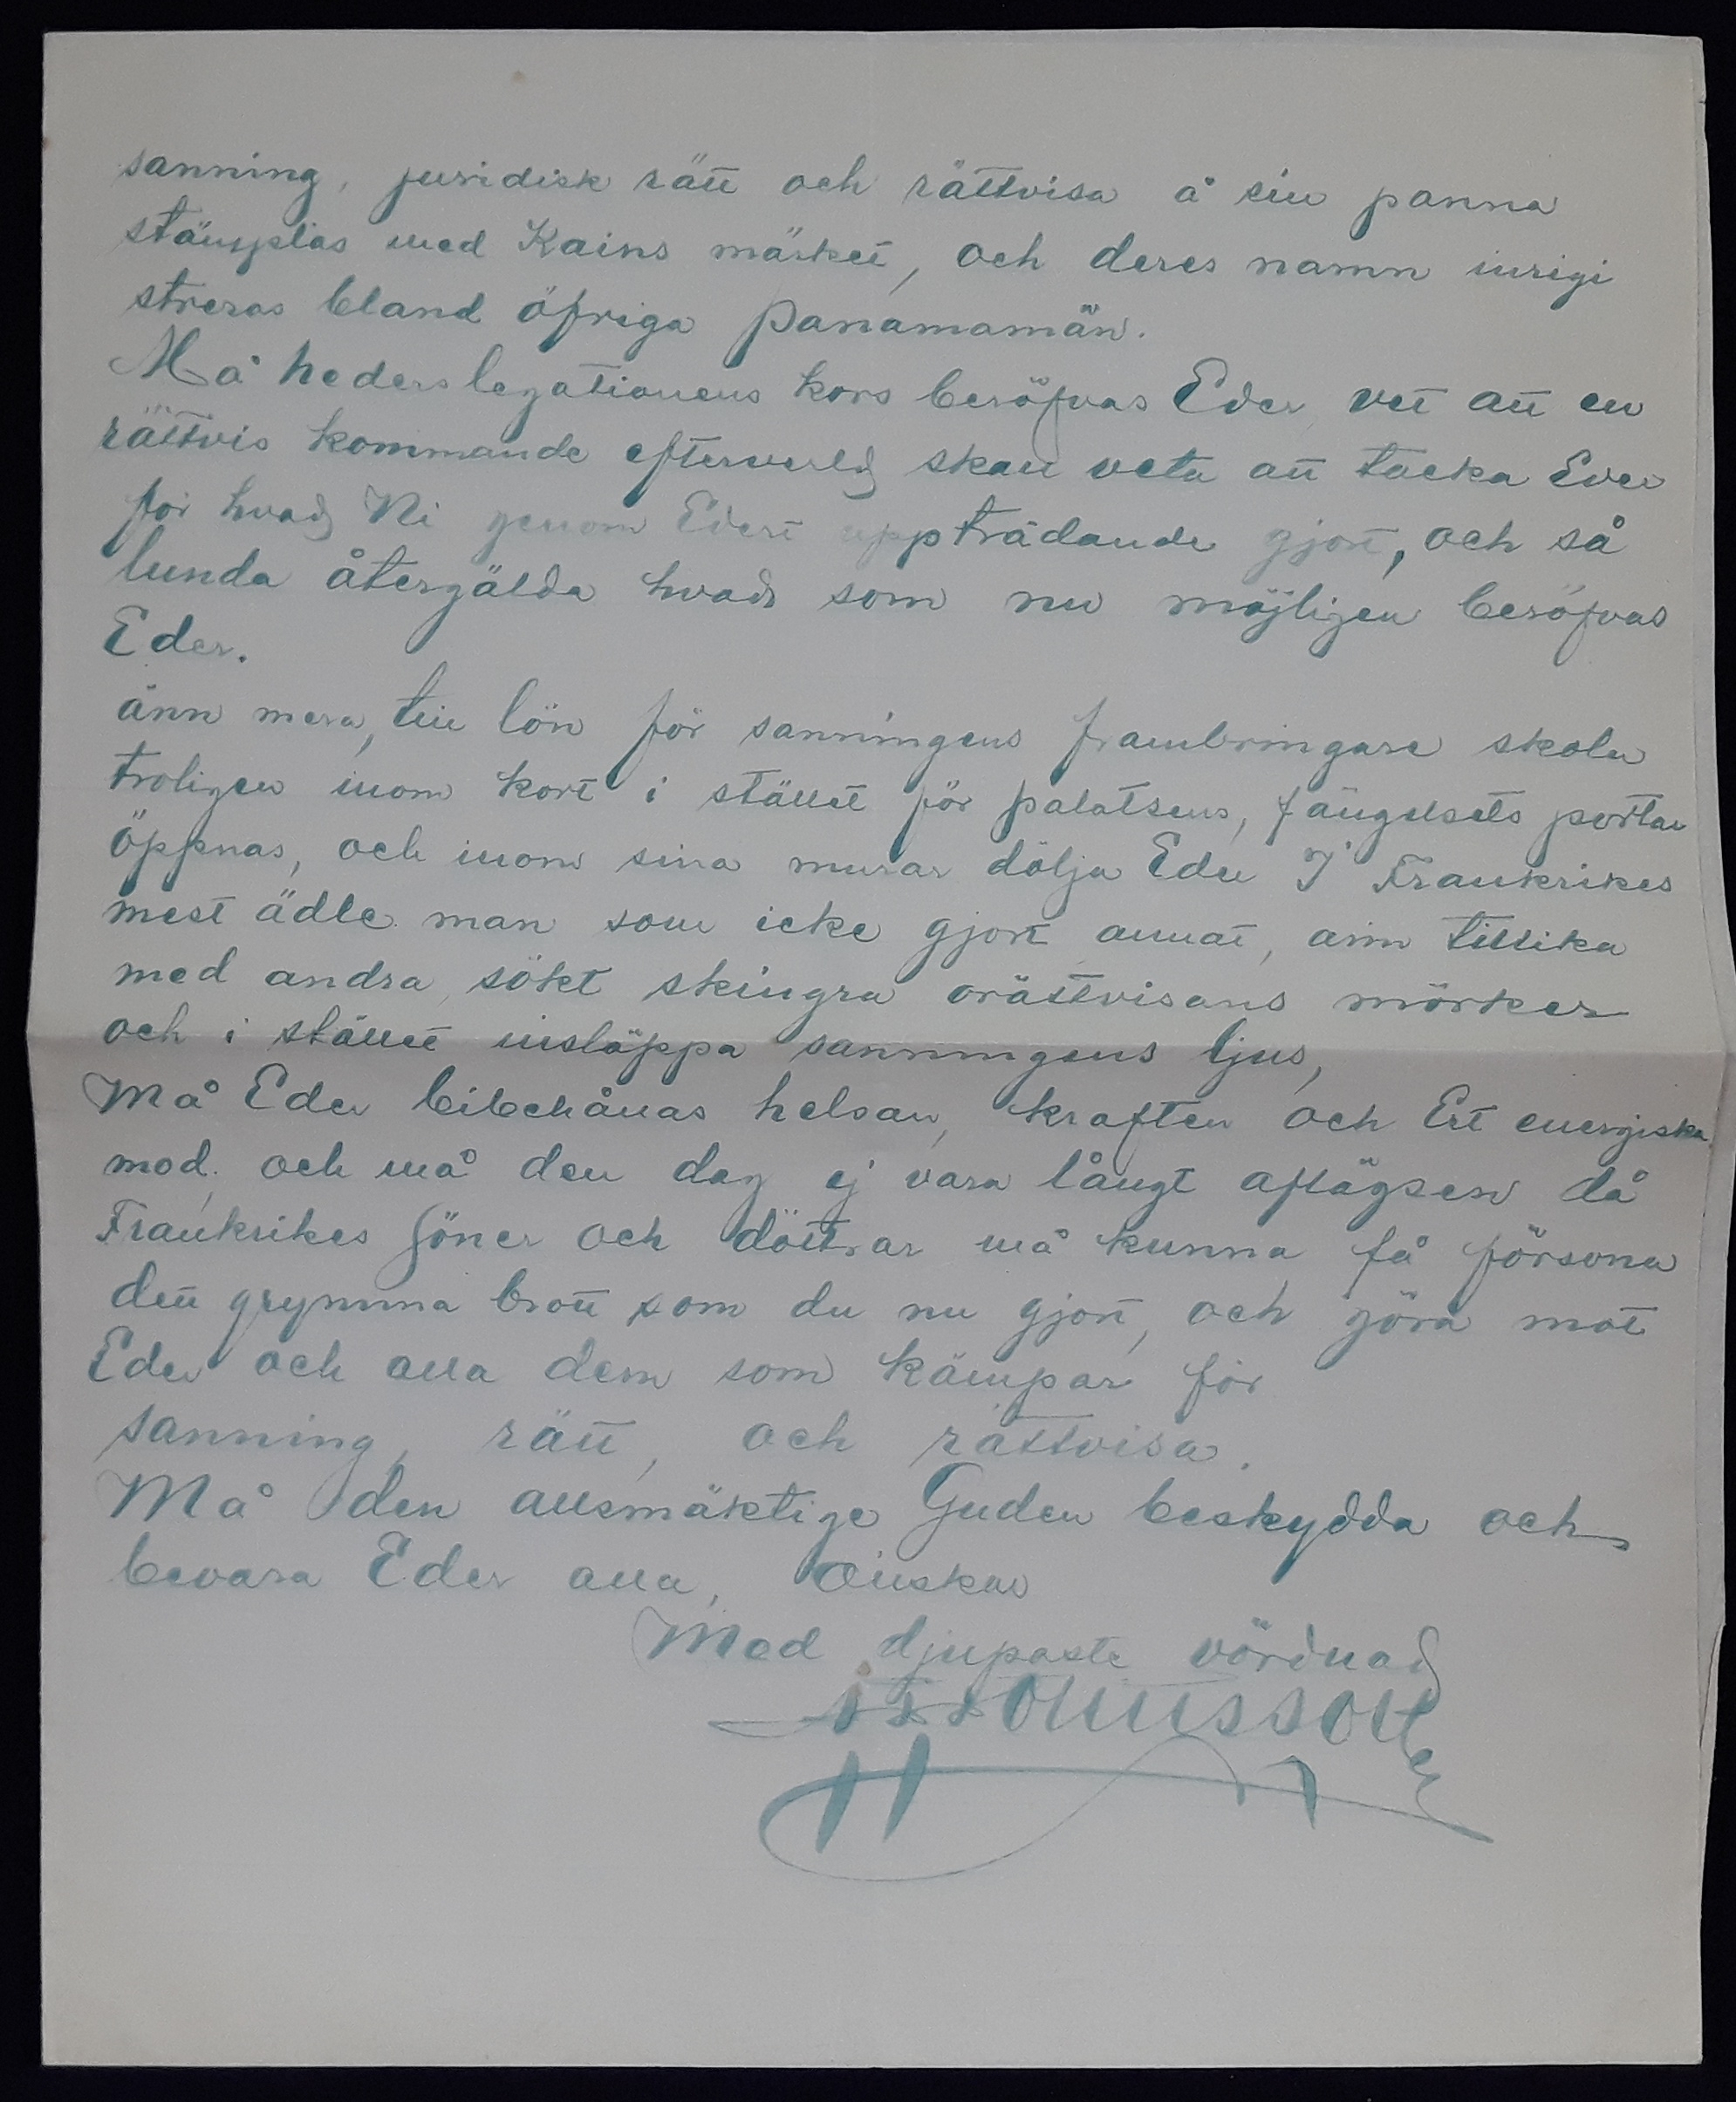 sanning, juridisk rätt och rättvisa å sin panna
stämplas med Kains märket, och deres namn inrigi
streras bland öfriga Panamamän.
Må hederslegationens kors beröfvas Eder vet att en
rättvis kommande efterverld skall veta att tacka Eder
för hvad Ni genom Edert uppträdande gjort, och så
lunda återgälda hvad som nu möjligen beröfvas
Eder.
änn mera, till lön för sanningens frambringare skola
troligen inom kort i stället för palatsens, fängelsets portar
öppnas, och inom sina murar dölja Eder I Frankrikes
mest ädle man som icke gjort annat, änn tillika
med andra, sökt skingra orättvisans mörker
och i stället insläppa sanningens ljus,
Må Eder bibehållas helsan, kraften och Ert energiska
mod, och må den dag ej vara långt aflägsen då
Frankrikes söner och döttrar må kunna få försona
det grymma brott som de nu gjort, och göra mot
Eder och alla dem som kämpar för
sanning, rätt, och rättvisa.
Må den allsmäktige Guden beskydda och
bevara Eder alla, önskar
Med djupaste vördnad